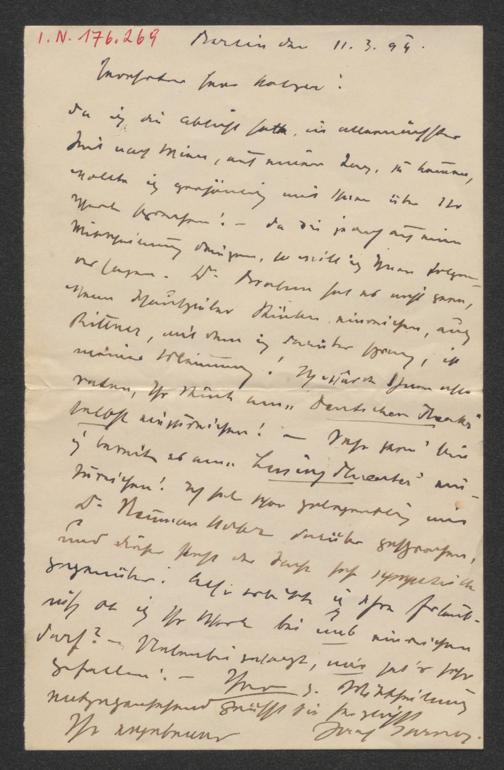 I.N. 176.269
Berlin den 11. 3. 99.
Verehrter Herr
Da ich die Absicht hatte, in allernächster
Zeit nach Wien, auf einige Tage, zu kommen,
wollte ich persönlich mit Ihnen über Ihr
Werk sprechen! – Da Sie jedoch auf eine
Mittheilung dringen, so will ich Ihnen Folgen-
des sagen. Dr. Brahm hat es nicht gern,
wenn Schauspieler Stücke einreichen, auch
Rittner, mit dem ich darüber sprach, ist
meiner Meinung! Ich würde Ihnen also
rathen, Ihr Stück am „Deutschen Theater"
selbst einzureichen! –
ich bereit es am „Lessing Theater" ein-
zureichen! Ich hab schon gelegentlich mit
Dr. Neumann Hofer darüber gesprochen,
und dieser steht der Sache sehr sympatisch
gegenüber! Also bitte ich
ob ich Ihr Werk bei uns einreichen
darf? – Nebenbei gesagt, mir hat's sehr
gefallen! – Ihrer g. Mittheilung
entgegensehend grüßt Sie herzlichst
Ihr ergebener Josef